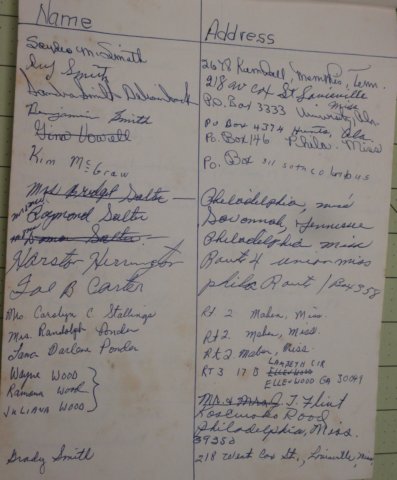 Name Address
Smith 2648 Kimball, Memphis, Tenn.
Smith 218 W Cox St Louisville
Sandra Smith P.O. Box 3333 University, Ala. Miss
Benjamin Smith PO Box 4374 Ala.
Gina Vowell P.O. Box 146 Phila. Miss
Kim McGraw P.O. Box 311 so th columbus
Mrs Bridget Salter Philadelphia, miss
Raymond Salter Savannah, Tennessee
Salter Philadelphia miss
Karston Herrington Rout 4 union miss
Joe B Carter phila Rout 1 Box 358
Mrs. Carolyn C Stallings Rt 2 Maben, Miss.
Mrs. Randolph Ponder Rt 2. Maben, Miss.
Tana Darlene Ponder Rt 2 Maben, Miss.
Wayne Wood RT 3 17 D CIR
Ramona Wood ELLENWOOD GA 30049
Juliana Wood
Mr. & Mrs. J. T. Flint
Kosciusko Road
Philadelphia, Miss.
39350
Brady Smith 218 West Cox St., Louisville, Miss.